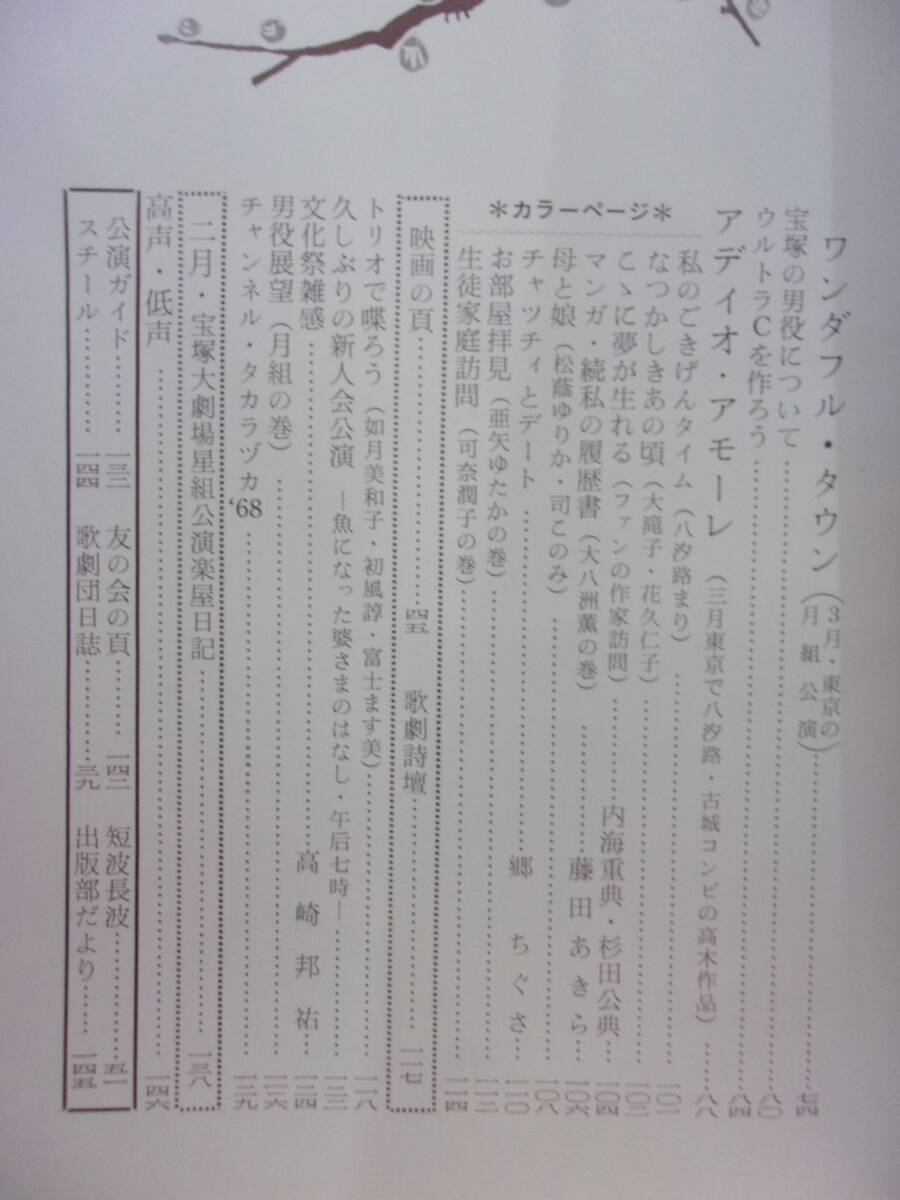 ワンダフル・タウン（3月・東京の月組公演）……七四
宝塚の男役について……八〇
ウルトラCを作ろう……八四
アディオ・アモーレ（三月東京で八汐路・古城コンビの高木作品）……八八
＊カラーページ＊
私のごきげんタイム（八汐路まり）……一〇一
なつかしきあの頃（大滝子・花久仁子）……一〇二
こゝに夢が生れる（ファンの作家訪問）……内海重典・杉田公典…一〇四
マンガ・続私の履歴書（大八洲薫の巻）……藤田あきら…一〇六
母と娘（松蔭ゆりか・司このみ）……一〇八
チャッチィとデート……郷ちぐさ…一一〇
お部屋拝見（亜矢ゆたかの巻）……一一二
生徒家庭訪問（可奈潤子の巻）……一一四
映画の頁……四五
歌劇詩壇……一一七
トリオで喋ろう（如月美和子・初風諄・富士ます美）……一一八
久しぶりの新人会公演―魚になった婆さまのはなし・午后七時―……一二二
文化祭雑感……高崎邦祐…一二四
男役展望（月組の巻）……一二六
チャンネル・タカラヅカ '68……一二九
二月・宝塚大劇場星組公演楽屋日記……一三八
高声・低声……一四六
公演ガイド……一三二
友の会の頁……一四二
短波長波……五一
スチール……一四四
歌劇団日誌……三九
出版部だより……一四五